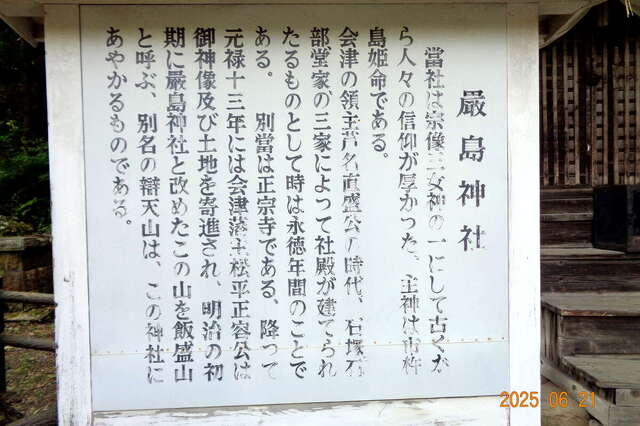 厳島神社
當社は宗像三女神の一にして古くか
ら人々の信仰が厚かった、主神は市杵
島姫命である。
会津の領主芦名直盛公の時代、石塚石
部堂家の三家によって社殿が建てられ
たるものとして時は永徳年間のことで
ある。 別當は正宗寺である、降って
元禄十三年には会津藩主松平正容公は
御神像及び土地を寄進され、明治の初
期に厳島神社と改めたこの山を飯盛山
と呼ぶ、別名の辯天山は、この神社に
あやかるものである。
2025 06 21